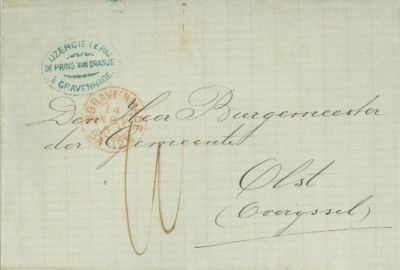 IJZERGIETERIJ
DE PRINS VAN ORANJE
'S GRAVENHAGE.
'S GRAVENHAGE
Den Heer Burgemeester
der Gemeente
Olst
(Overyssel)